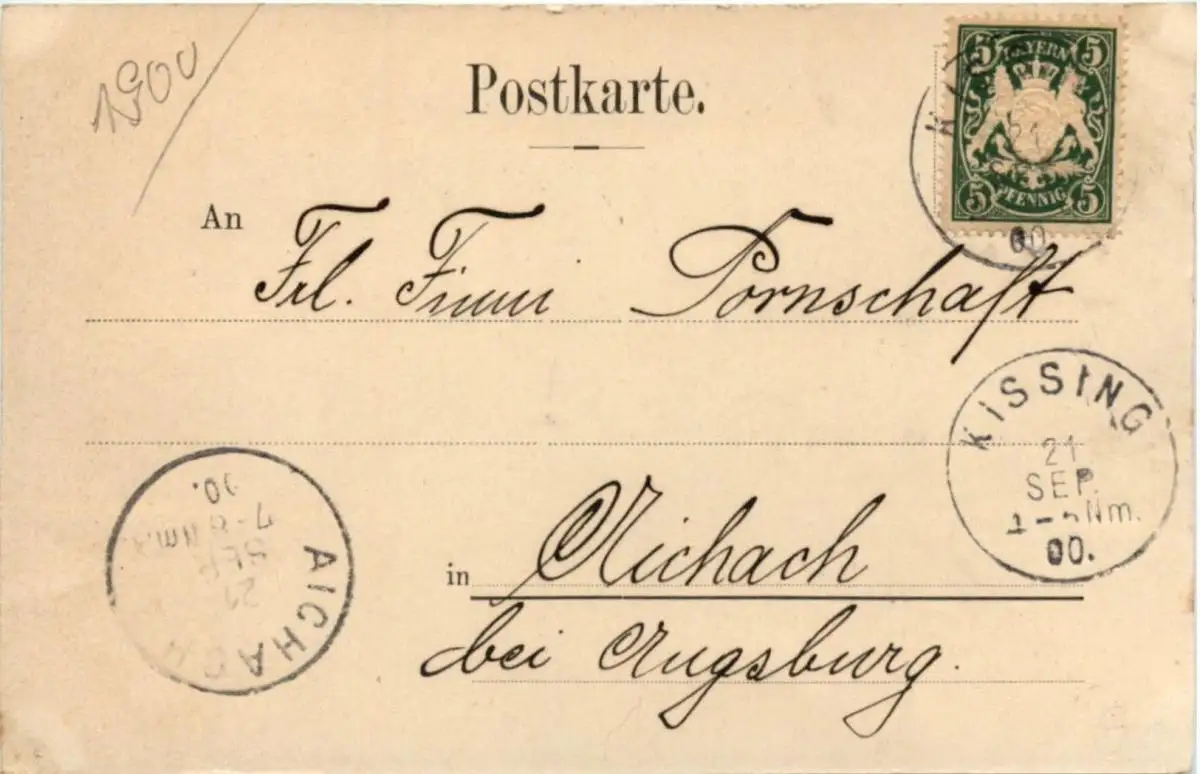 1900
Postkarte.
5 BAYERN 5
5 PFENNIG 5
21
00
An Frl. Fimmi Pornschaft
KISSING
21
SEP.
Nm.
00.
AICHACH
21
SEP
7-8 Nm.
00.
in Aichach
bei Augsburg.